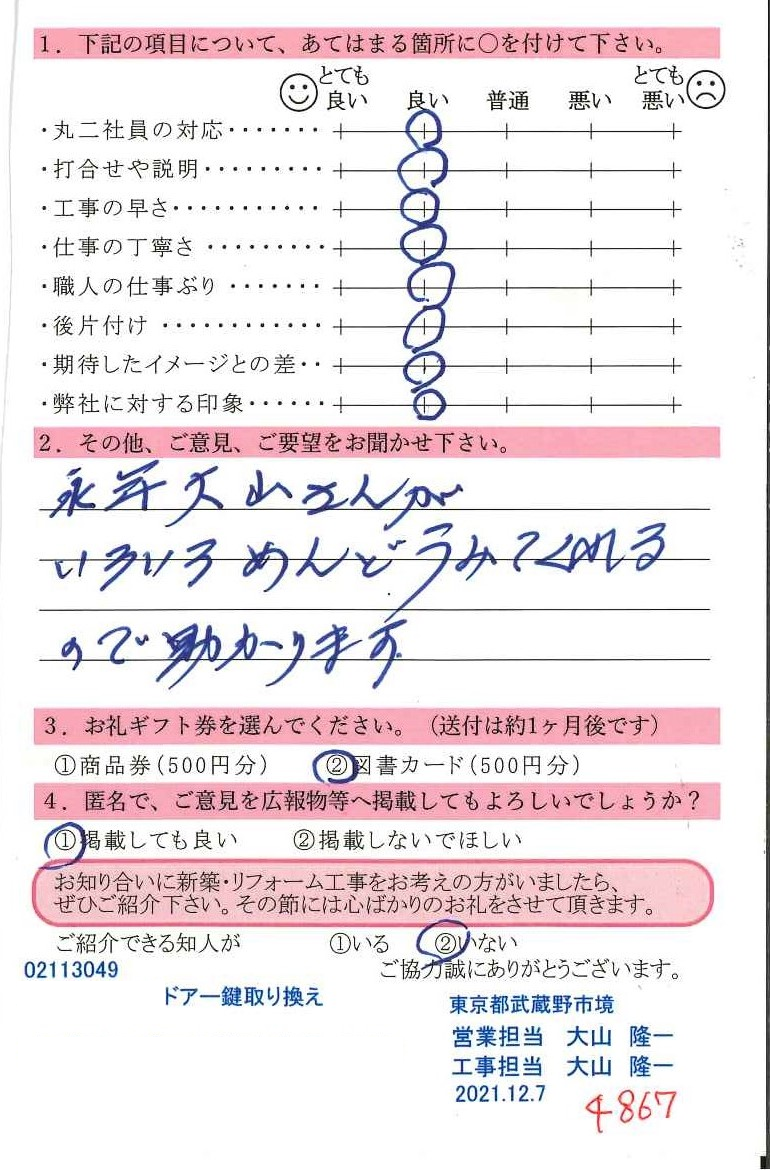 1. 下記の項目について、あてはまる箇所に○を付けて下さい。
とても良い 良い 普通 悪い とても悪い
・丸二社員の対応・・・・・・・
・打合せや説明・・・・・・・・・
・工事の早さ・・・・・・・・・・・
・仕事の丁寧さ・・・・・・・・・
・職人の仕事ぶり・・・・・・・
・後片付け・・・・・・・・・・・・
・期待したイメージとの差・・
・弊社に対する印象・・・・・・
2. その他、ご意見、ご要望をお聞かせ下さい。
永年大山さんが
いろいろめんどうみてくれる
ので助かります
3. お礼ギフト券を選んでください。(送付は約1ヶ月後です)
①商品券(500円分) ②図書カード(500円分)
4. 匿名で、ご意見を広報物等へ掲載してもよろしいでしょうか?
①掲載しても良い ②掲載しないでほしい
お知り合いに新築・リフォーム工事をお考えの方がいましたら、
ぜひご紹介下さい。その節には心ばかりのお礼をさせて頂きます。
ご紹介できる知人が ①いる ②いない
02113049 ご協力誠にありがとうございます。
ドアー鍵取り換え
東京都武蔵野市境
営業担当 大山 隆一
工事担当 大山 隆一
2021.12.7
4867